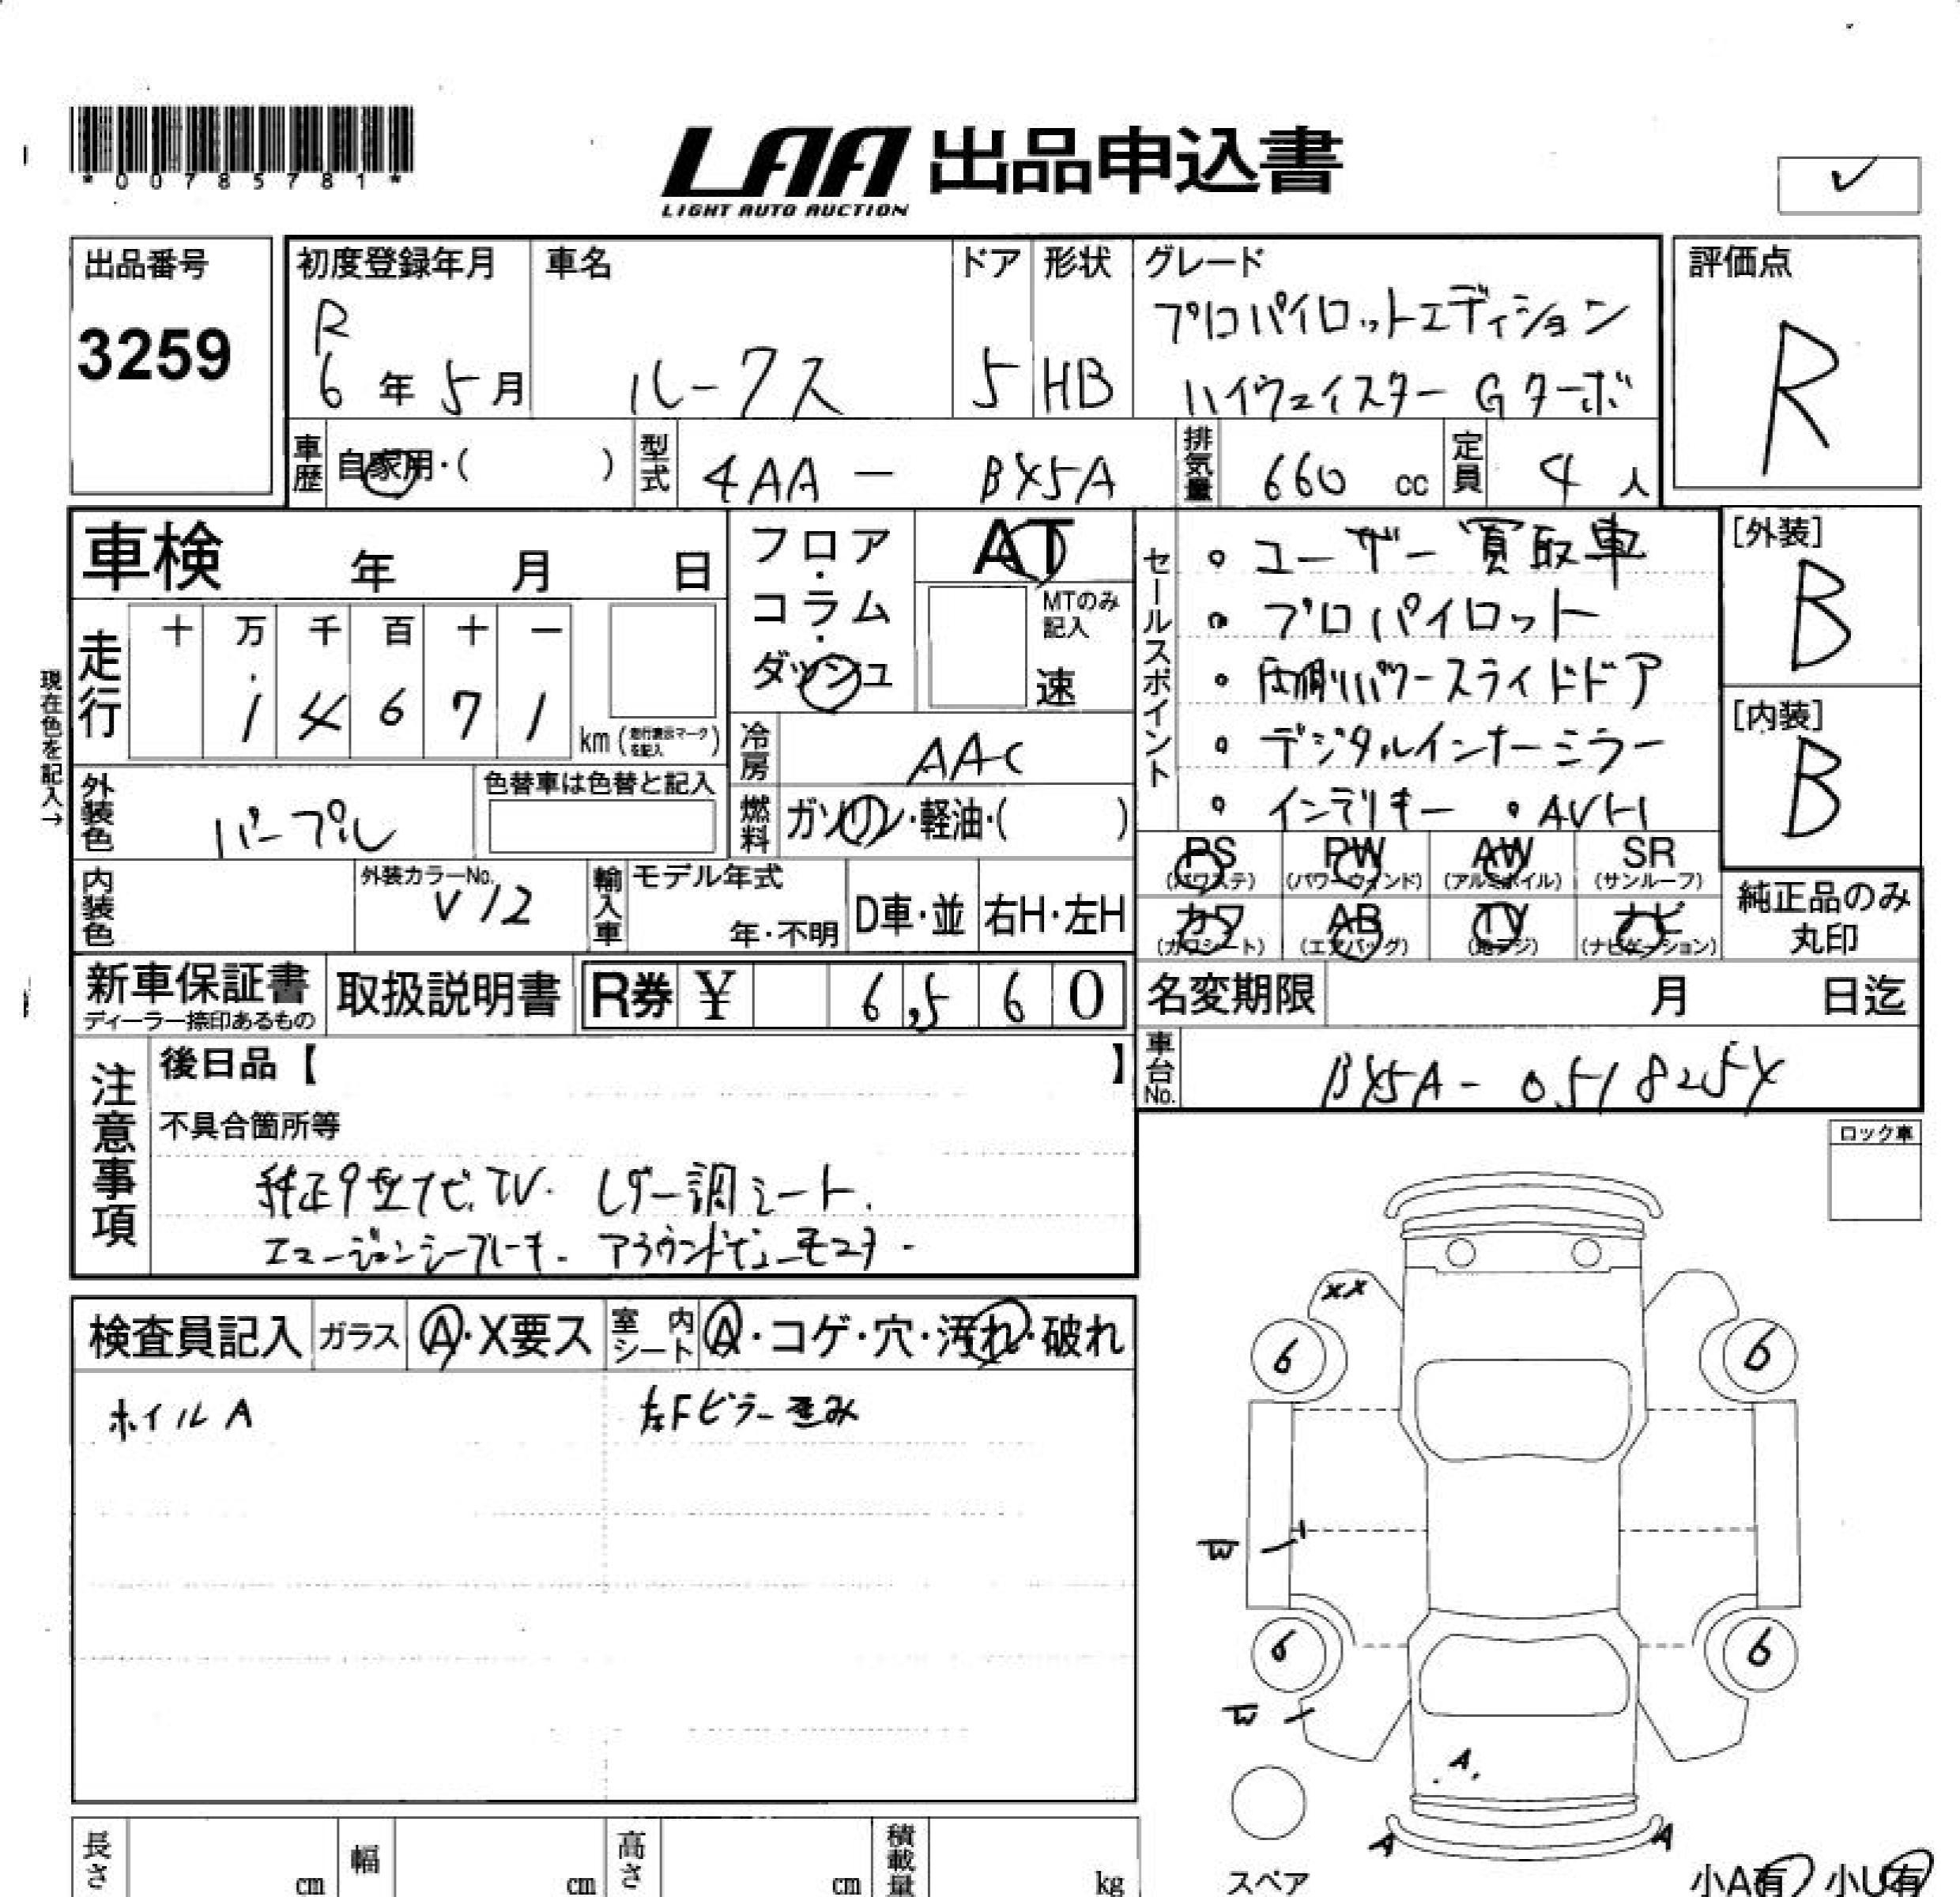 *00785781*
LAA 出品申込書
LIGHT AUTO AUCTION
✓
出品番号
3259
初度登録年月
R
6年5月
車名
ルークス
ドア
5
形状
HB
グレード
プロパイロットエディション
ハイウェイスター Gターボ
評価点
R
車歴
自家用・( )
型式
4AA - BX5A
排気量
660 cc
定員
4人
車検 年 月 日
フロア・コラム・ダッシュ
AT
MTのみ記入
速
セールスポイント
・ユーザー買取車
・プロパイロット
・両側パワースライドドア
・デジタルインナーミラー
・インテリキー ・AVH
[外装]
B
[内装]
B
現在色を記入→
走行
十 万 千 百 十 一
1 4 6 7 1
km(走行表示マークを記入)
冷房
AAC
外装色
パープル
色替車は色替と記入
燃料
ガソリン・軽油・( )
PS (パワステ)
PW (パワーウィンド)
AW (アルミホイル)
SR (サンルーフ)
カワ (カワシート)
AB (エアバッグ)
TV (地デジ)
ナビ (ナビゲーション)
純正品のみ丸印
内装色
外装カラーNo.
V12
輸入車
モデル年式
年・不明
D車・並
右H・左H
新車保証書
ディーラー捺印あるもの
取扱説明書
R券 ¥ 6,560
名変期限 月 日迄
車台No.
BX5A-051825X
注意事項
後日品【 】
不具合箇所等
純正9型ナビ.TV. レザー調シート.
エマージェンシーブレーキ. アラウンドビューモニター.
ロック車
検査員記入
ガラス
A・X要ス
室内シート
A・コゲ・穴・汚れ・破れ
ホイルA
左Fピラー歪み
XX
6
6
W
6
6
W
A
A
A
スペア
長さ cm
幅 cm
高さ cm
積載量 kg
小A有 小U有